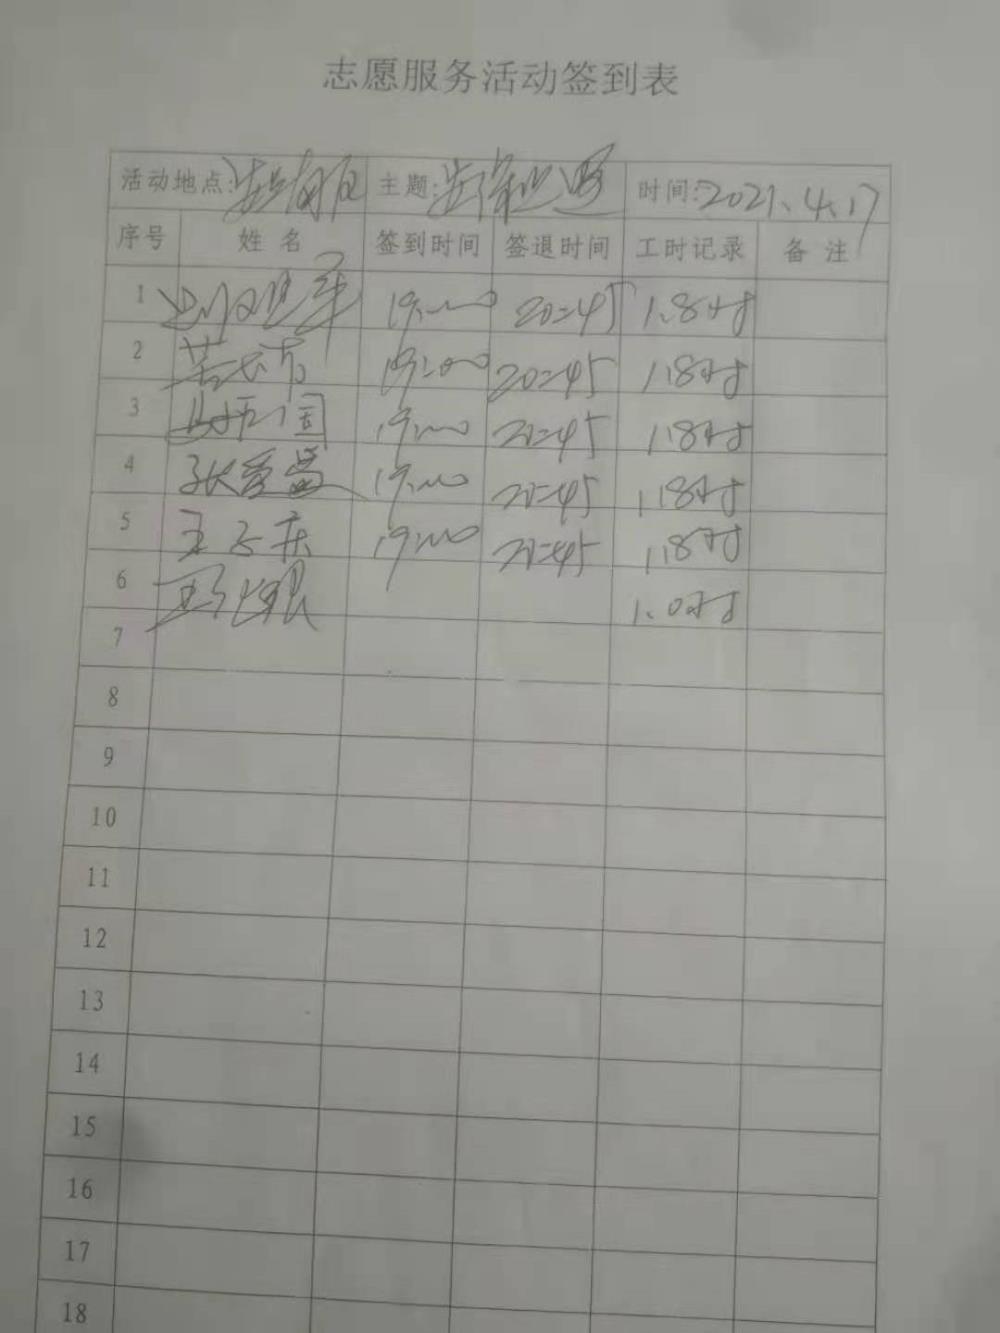 志愿服务活动签到表
活动地点: 主题: 时间:2021.4.17
序号 姓名 签到时间 签退时间 工时记录 备注
1 19:00 20:45 1.8时
2 19:00 20:45 1.8时
3 19:00 20:45 1.8时
4 19:00 20:45 1.8时
5 19:00 20:45 1.8时
6 1.0时
7
8
9
10
11
12
13
14
15
16
17
18